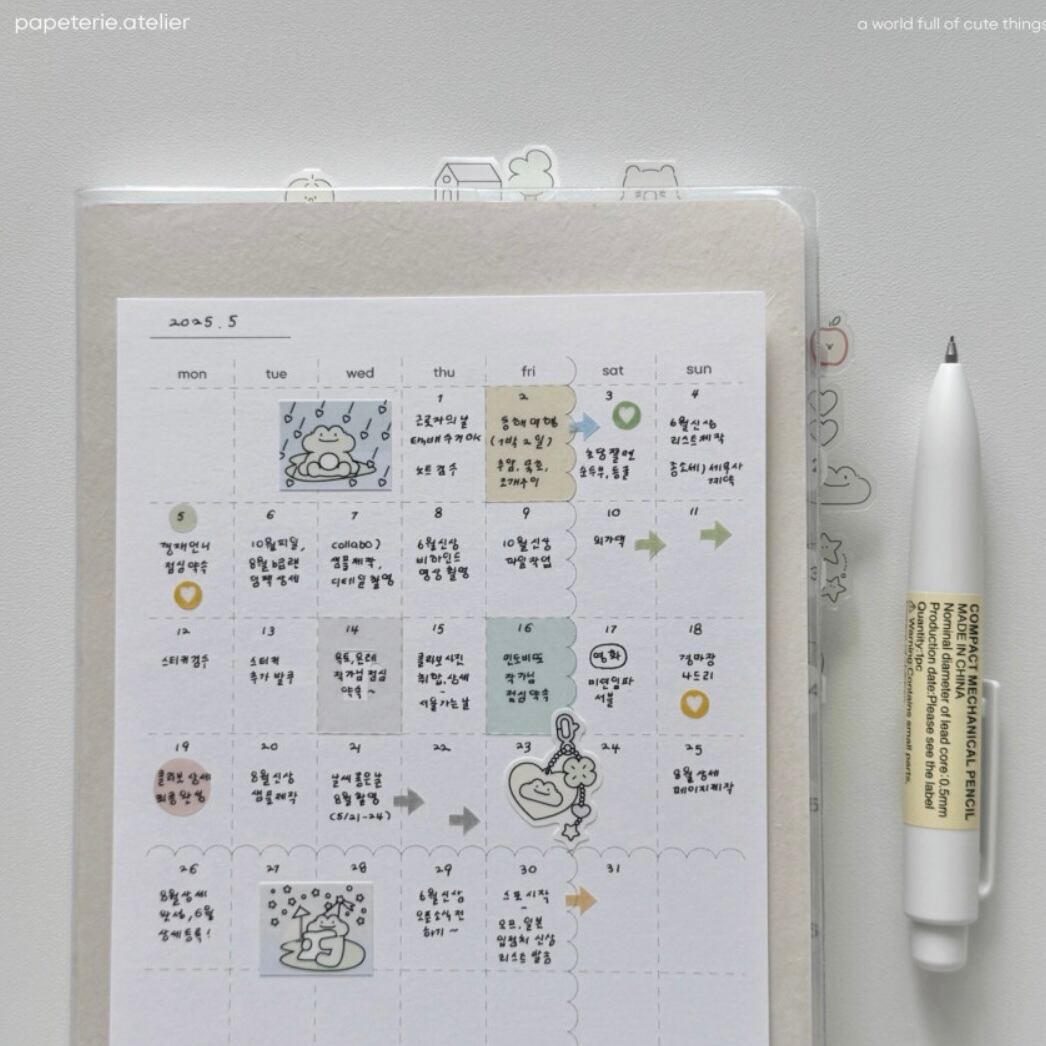 papeterie.atelier
a world full of cute things
2025.5
mon tue wed thu fri sat sun
1
근로자의 날
택배 수거 OK
노트 검수
2
동해여행
(1박 2일)
추암, 묵호,
3
초당쫄면
순두부, 동굴
4
6월 신상
리스트 제작
종소세) 세무사
계약
5
점심 약속
6
10월 피일,
8월 b급랜
덤팩 상세
7
collabo)
샘플 제작,
디테일 촬영
8
6월 신상
비하인드
영상 촬영
9
10월 신상
파일 작업
10
외가댁
11
12
스티커 검수
13
스티커
추가 발주
14
작가님 점심
약속~
15
콜라보 사진
취합, 상세
-
서울 가는 날
16
인도비또
작가님
점심 약속
17
영화
미션임파
서블
18
경마장
나드리
19
콜라보 상세
최종 완성
20
8월 신상
샘플 제작
21
날씨 좋은 날
8월 촬영
(5/21-24)
22
23
24
25
8월 상세
페이지 제작
26
8월 상세
완성, 6월
상세 등록!
27
28
29
6월 신상
오픈 소식 전
하기~
30
스포 시작
-
오프, 일본
입점처 신상
리스트 발송
31
COMPACT MECHANICAL PENCIL
MADE IN CHINA
Nominal diameter of lead core:0.5mm
Production date:Please see the label
Quantity:1pc
Warning:Contains small parts.